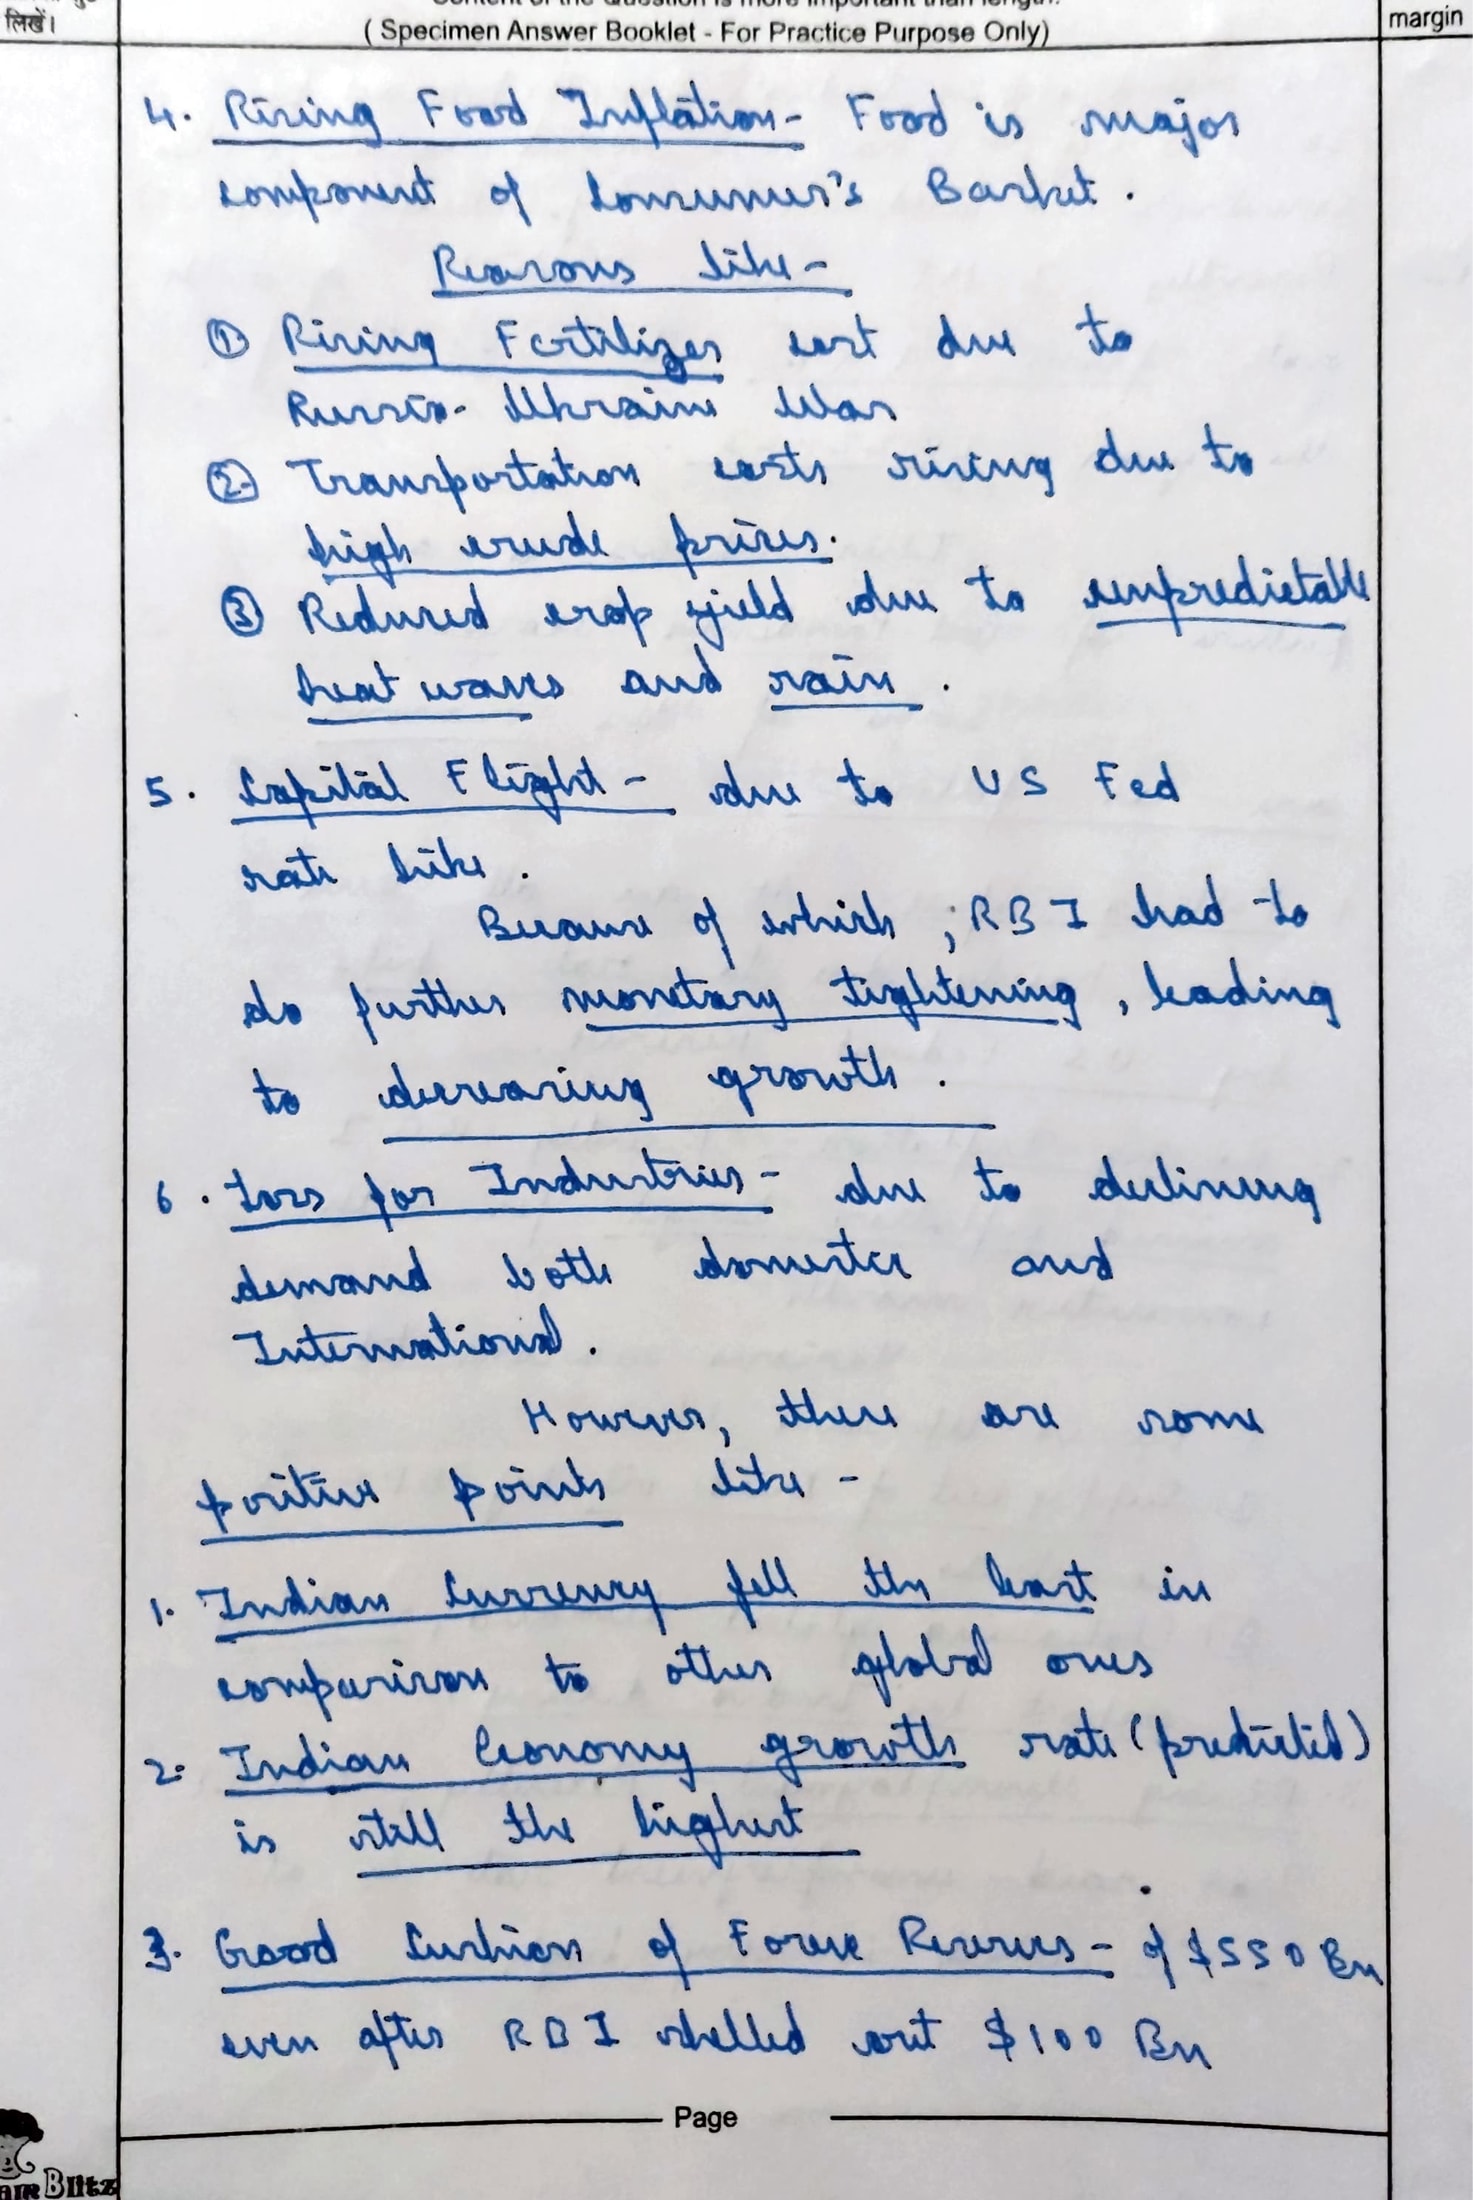 लिखें।
Content of the Question is more important than length.
( Specimen Answer Booklet - For Practice Purpose Only)
margin
4. Rising Food Inflation - Food is major
component of Consumer's Basket.
Reasons like -
① Rising Fertilizer cost due to
Russia-Ukraine War
② Transportation costs rising due to
high crude prices.
③ Reduced crop yield due to unpredictable
heat waves and rain.
5. Capital Flight - due to US Fed
rate hike.
Because of which ; RBI had to
do further monetary tightening, leading
to decreasing growth.
6. Loss for Industries - due to declining
demand both domestic and
International.
However, there are some
positive points like -
1. Indian Currency fell the least in
comparison to other global ones
2. Indian Economy growth rate (predicted)
is still the highest
3. Good Cushion of Forex Reserves - of $550 Bn
even after RBI shelled out $100 Bn
Page
Blitz